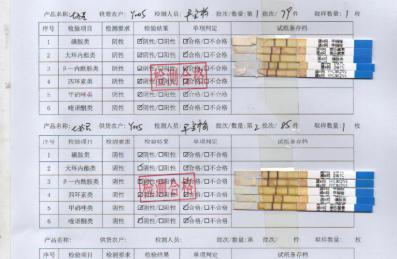 产品名称: 供货农户: Y005 检测人员: 批次/数量:第 1 批次/ 79 件 取样数量 1 枚
序号 检验项目 检测要求 检验结果 单项判定 试纸条存档
1 磺胺类 阴性 ☑阴性/☐阳性 ☑合格/☐不合格
2 大环内酯类 阴性 ☑阴性/☐阳性 ☑合格/☐不合格
3 β一内酰胺类 阴性 ☑阴性/☐阳性 ☑合格/☐不合格
4 四环素类 阴性 ☑阴性/☐阳性 ☑合格/☐不合格
5 甲硝唑类 阴性 ☑阴性/☐阳性 ☑合格/☐不合格
6 喹诺酮类 阴性 ☑阴性/☐阳性 ☑合格/☐不合格
检测合格
产品名称: 供货农户: Y005 检测人员: 批次/数量:第 2 批次/ 85 件 取样数量 1 枚
序号 检验项目 检测要求 检验结果 单项判定 试纸条存档
1 磺胺类 阴性 ☑阴性/☐阳性 ☑合格/☐不合格
2 大环内酯类 阴性 ☑阴性/☐阳性 ☑合格/☐不合格
3 β一内酰胺类 阴性 ☑阴性/☐阳性 ☑合格/☐不合格
4 四环素类 阴性 ☑阴性/☐阳性 ☑合格/☐不合格
5 甲硝唑类 阴性 ☑阴性/☐阳性 ☑合格/☐不合格
6 喹诺酮类 阴性 ☑阴性/☐阳性 ☑合格/☐不合格
检测合格
产品名称: 供货农户: 检测人员: 批次/数量:第 批次/ 件 取样数量 枚
序号 检验项目 检测要求 检验结果 单项判定 试纸条存档